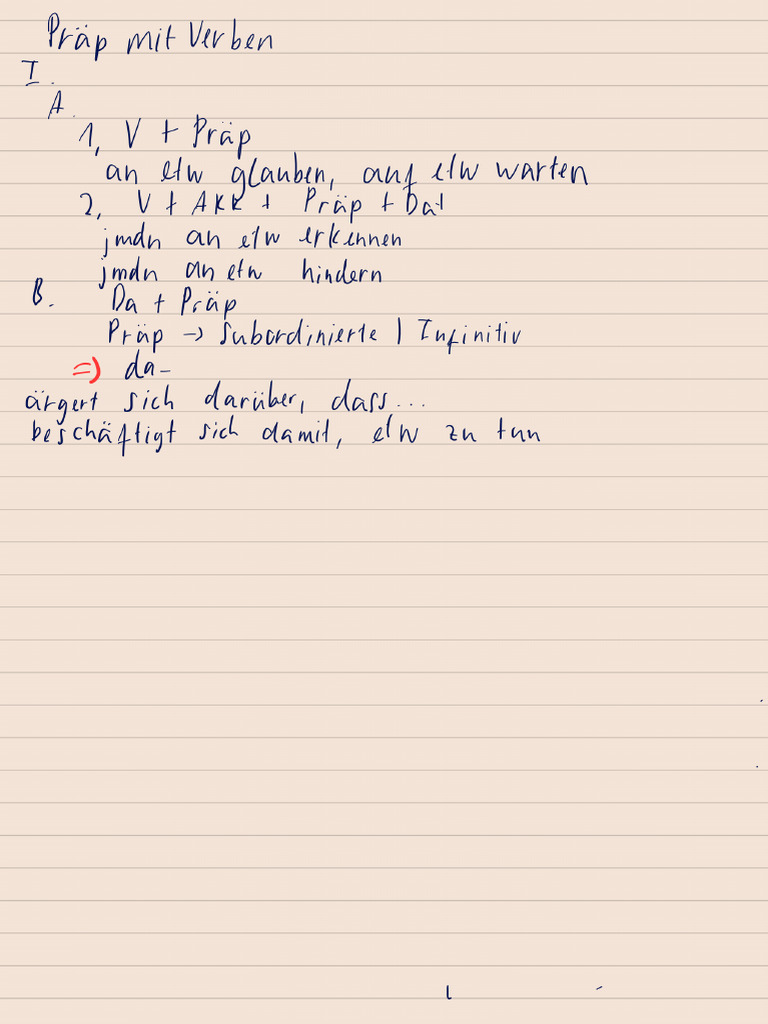 Präp mit Verben
I.
A.
1, V + Präp
an etw glauben, auf etw warten
2, V + AKK + Präp + Dat
jmdn an etw erkennen
jmdn an etw hindern
B. Da + Präp
Präp → Subordinierte | Infinitiv
=) da-
ärgert sich darüber, dass...
beschäftigt sich damit, etw zu tun